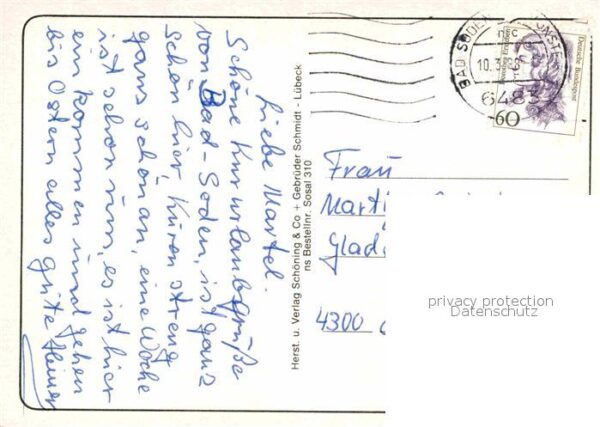 Liebe Martel.
Schöne Kururlaubsgrüße
von Bad-Soden, ist ganz
schön hier, Kuren streng
ganz schön an, eine Woche
ist schon rum, es ist hier
ein kommen und gehen
bis Ostern alles gute Heiner
Herst. u. Verlag Schöning & Co + Gebrüder Schmidt - Lübeck
ns Bestellnr. Sosal 310
BAD SODEN
10.3.88
6483
60
Deutsche Bundespost
Frau
Marti
Gladi
4300
privacy protection
Datenschutz